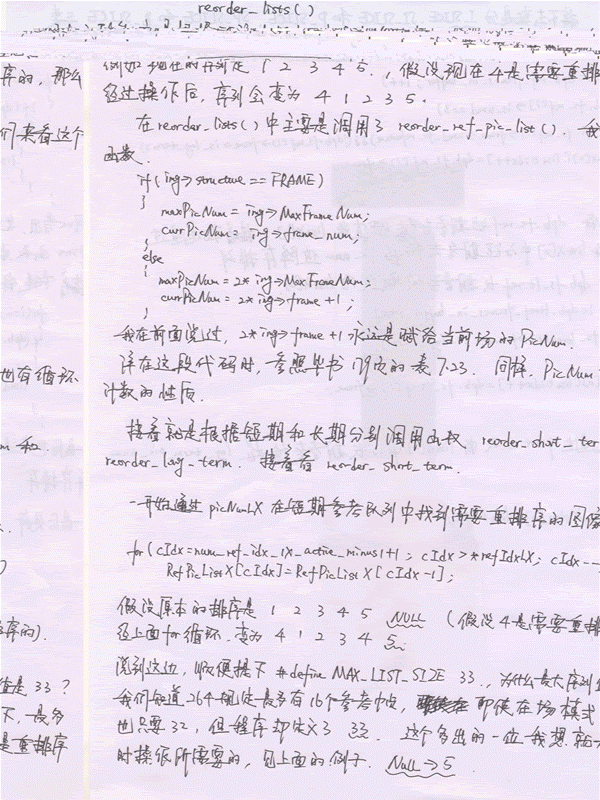 reorder_lists()
序的，那么
例如现在的序列是 1 2 3 4 5，假设现在4是需要重排
经过操作后，序列会变为 4 1 2 3 5.
们来看这个
在reorder_lists()中主要是调用了 reorder_ref_pic_list(). 我
函数.
if(img->structure==FRAME)
{
maxPicNum = img->MaxFrameNum;
currPicNum = img->frame_num;
}
else
{
maxPicNum = 2*img->MaxFrameNum;
currPicNum = 2*img->frame+1;
}
我在前面说过, 2*img->frame+1永远是赋给当前场的PicNum.
也有循环
在这段代码时, 参照毕书 页的表7.23. 同样, PicNum
计数的性质.
m 和
接着就是根据短期和长期分别调用函数 reorder_short_ter
reorder_long_term. 接着看 reorder_short_term.
一开始通过 picNumLX 在短期参考队列中找到需要重排序的图像
for(cIdx=num_ref_idx_lX_active_minus1+1; cIdx>*refIdxLX; cIdx--
RefPicListX[cIdx]=RefPicListX[cIdx-1];
假设原本的排序是 1 2 3 4 5 NULL (假设4是需要重排
序的).
经上面for循环.变为 4 1 2 3 4 5.
说到这边, 顺便提下 #define MAX_LIST_SIZE 33., 为什么最大序列
值是33?
我们知道264规定最多有16个参考帧, 即使在场模式
下, 最多
也只要32, 但程序却定义了 33. 这个多出的一位我想就
是重排序
时操作所需要的, 见上面的例子. NULL->5